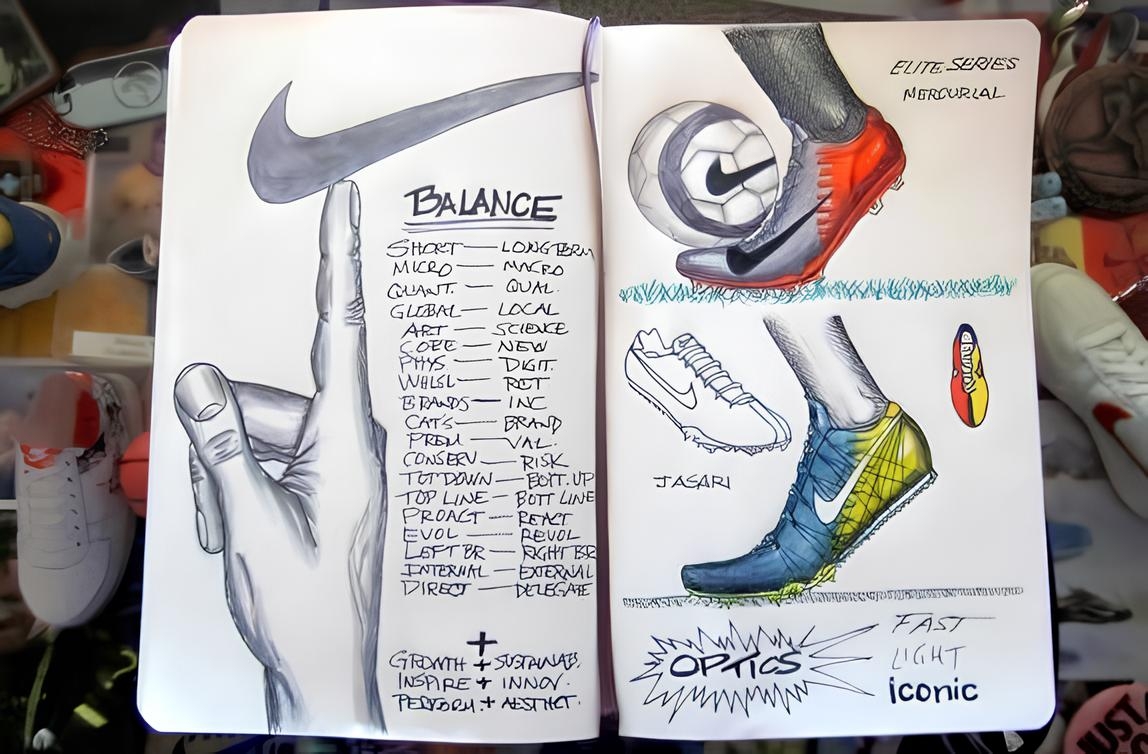 BALANCE
SHORT — LONG TERM
MICRO — MACRO
QUANT. — QUAL.
GLOBAL — LOCAL
ART — SCIENCE
CORE — NEW
PHYS — DIGIT.
WHLSL — RET
BRANDS — INC
CAT'S — BRAND
PREM — VAL.
CONSERV — RISK
TOP DOWN — BOTT. UP
TOP LINE — BOTT LINE
PROACT — REACT
EVOL — REVOL
LEFT BR — RIGHT BR
INTERNAL — EXTERNAL
DIRECT — DELEGATE
+
GROWTH + SUSTAINAB.
INSPIRE + INNOV.
PERFORM. + AESTHET.
ELITE SERIES
MERCURIAL
JASARI
OPTICS
FAST
LIGHT
iconic
JUST